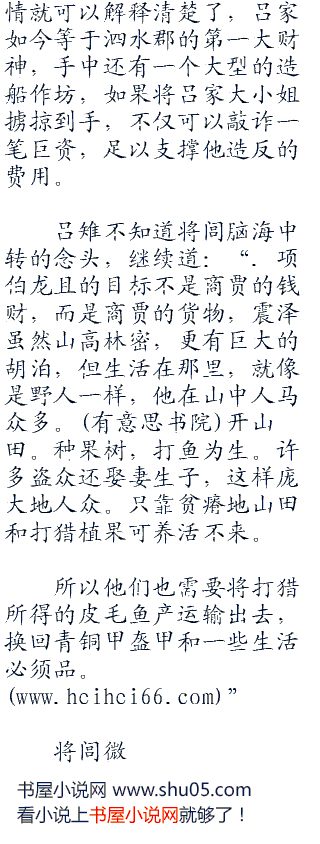 情就可以解释清楚了，吕家
如今等于泗水郡的第一大财
神，手中还有一个大型的造
船作坊，如果将吕家大小姐
掳掠到手，不仅可以敲诈一
笔巨资，足以支撑他造反的
费用。
吕雉不知道将闾脑海中
转的念头，继续道：“．项
伯龙且的目标不是商贾的钱
财，而是商贾的货物，震泽
虽然山高林密，更有巨大的
胡泊，但生活在那里，就像
是野人一样，他在山中人马
众多。(有意思书院)开山
田。种果树，打鱼为生。许
多盗众还娶妻生子，这样庞
大地人众。只靠贫瘠地山田
和打猎植果可养活不来。
所以他们也需要将打猎
所得的皮毛鱼产运输出去，
换回青铜甲盔甲和一些生活
必须品。
(www.hcihci66.com)”
将闾微
书屋小说网 www.shu05.com
看小说上书屋小说网就够了！